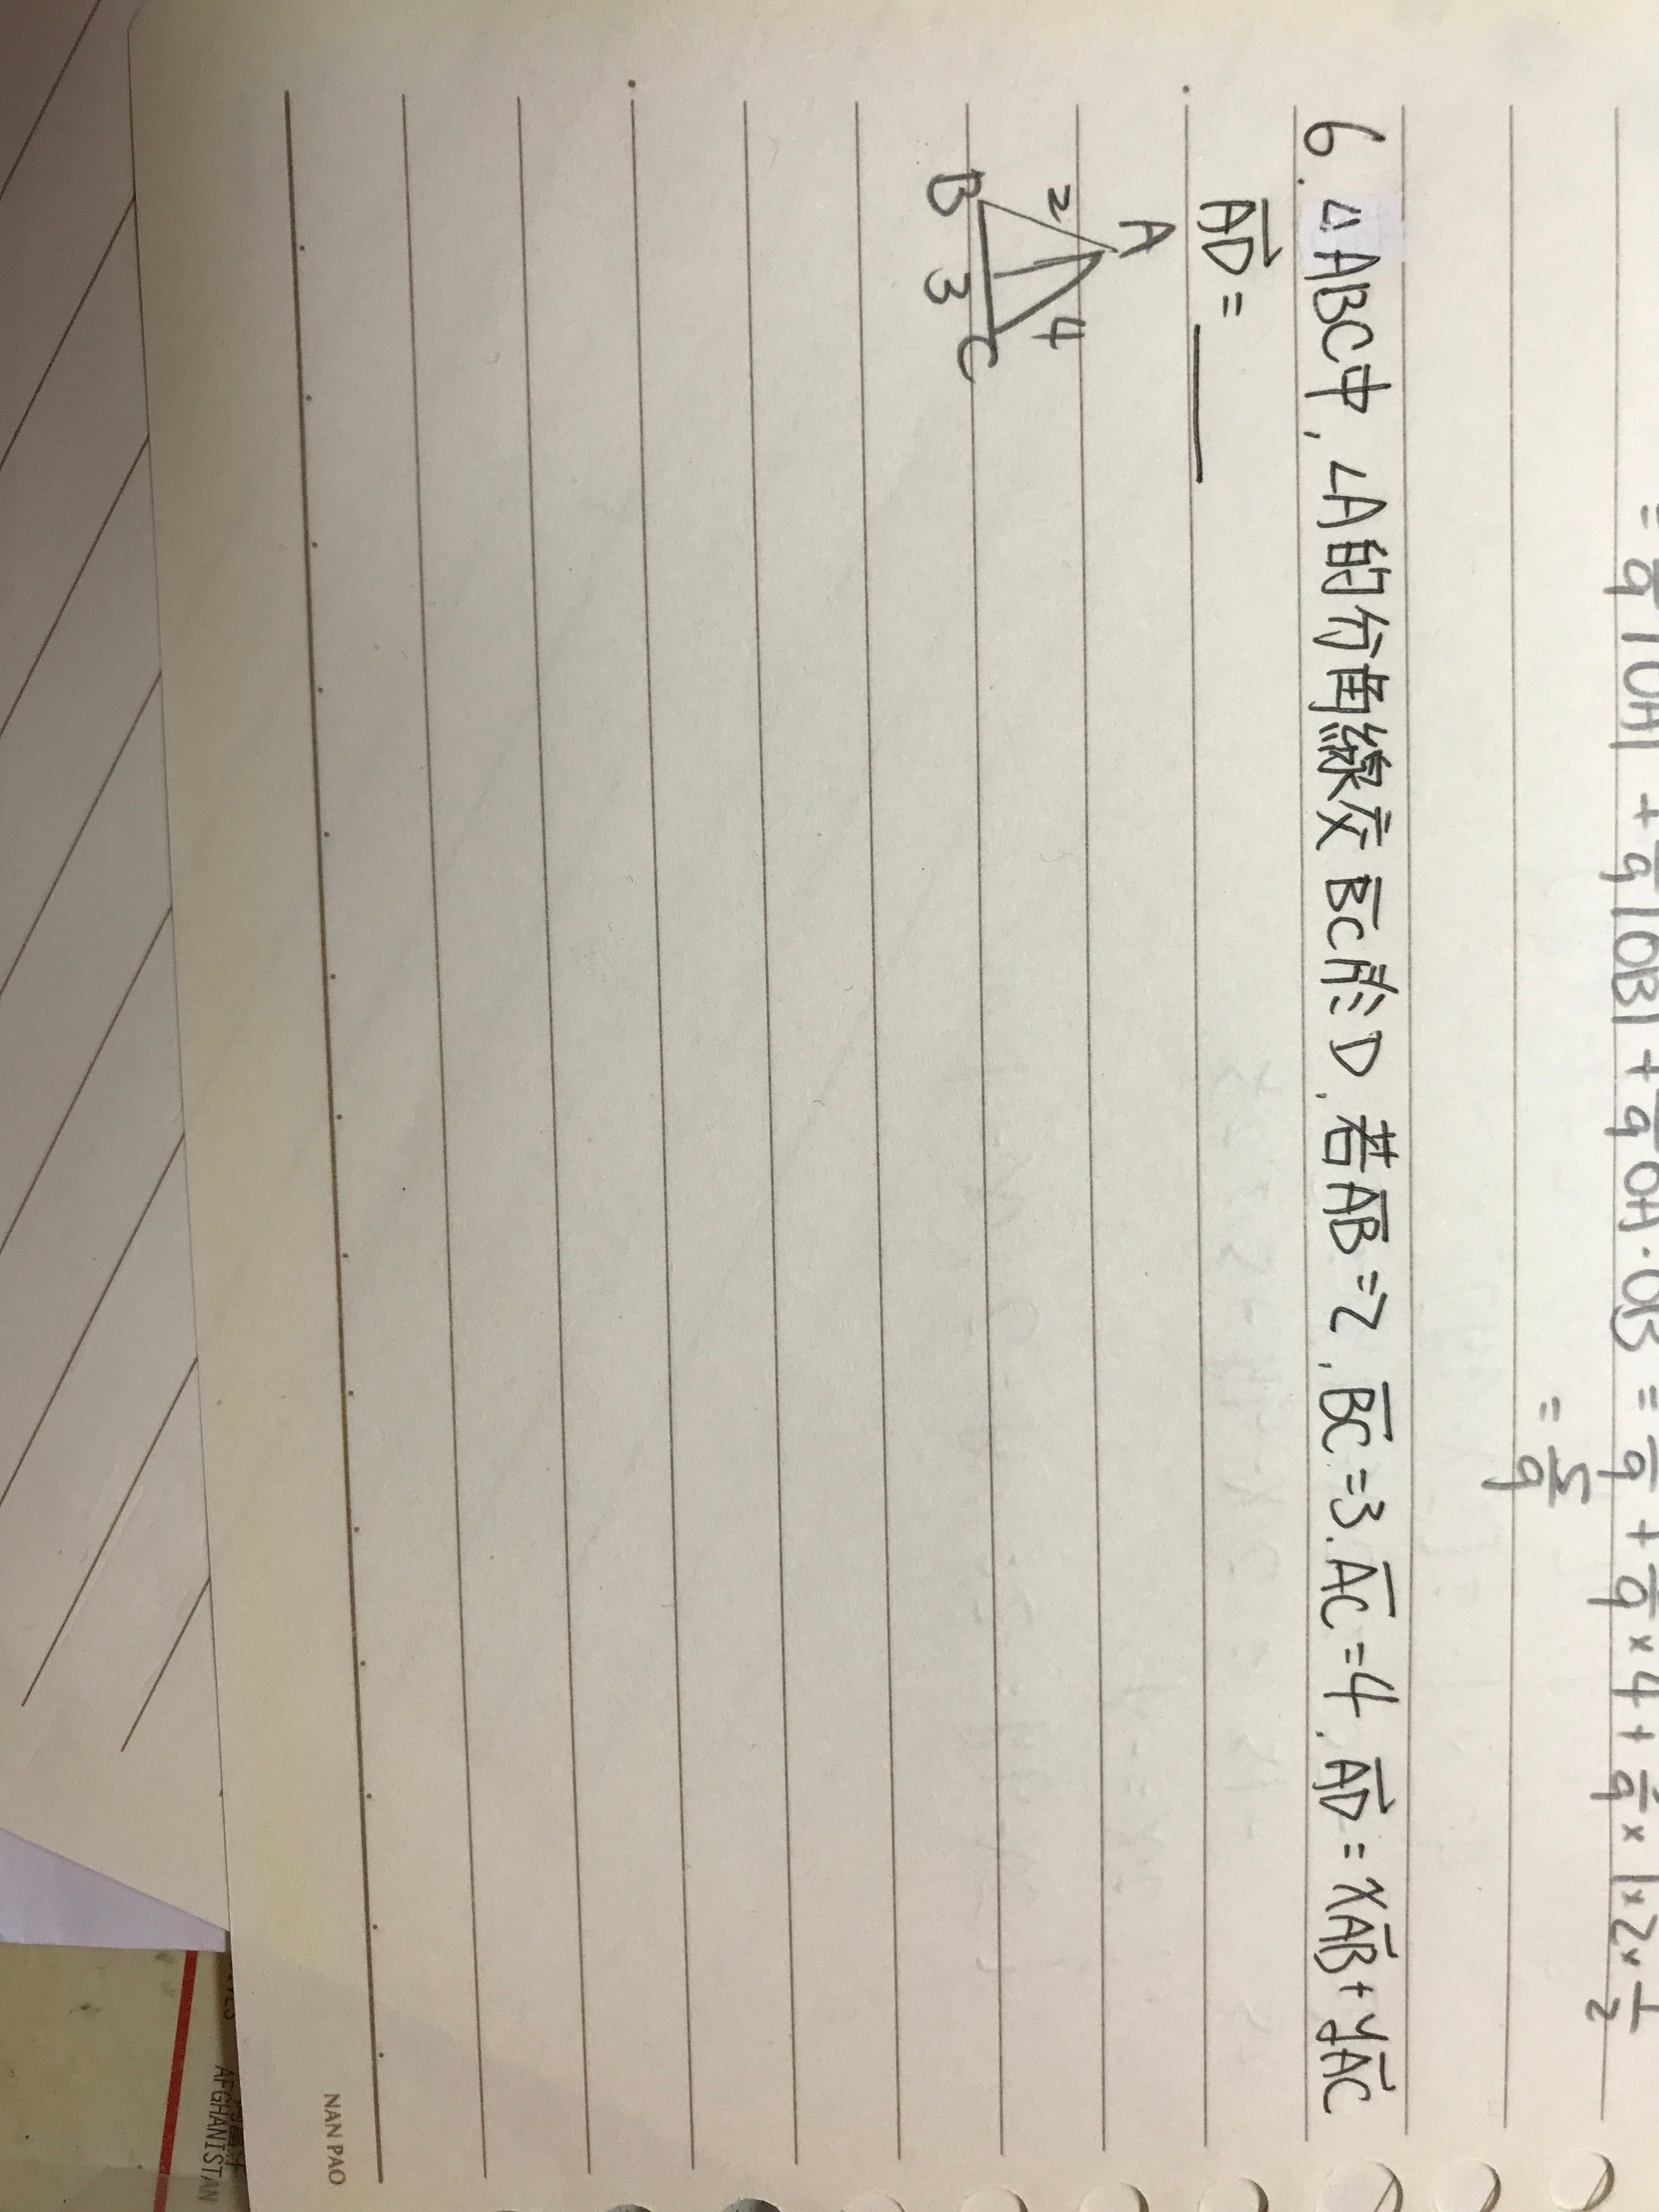 = 1/9 |OA| + 1/9 |OB| + 2/9 OA·OB = 1/9 + 1/9 × 4 + 2/9 × 1×2× 1/2
= 5/9
6. △ABC中, ∠A的分角線交 BC於D, 若AB=2, BC=3, AC=4, AD=xAB+yAC
AD= ____
A
2 4
B 3 C
NAN PAO
AFGHANISTAN